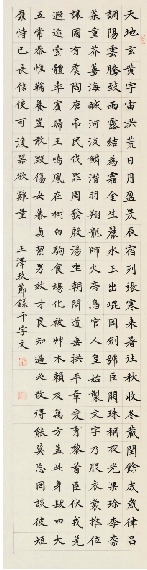 天地玄黃宇宙洪荒日月盈昃辰宿列張寒來暑往秋收冬藏閏餘成歲律呂
調陽雲騰致雨露結為霜金生麗水玉出崑岡劍號巨闕珠稱夜光果珍李柰
菜重芥薑海鹹河淡鱗潛羽翔龍師火帝鳥官人皇始製文字乃服衣裳推位
讓國有虞陶唐弔民伐罪周發殷湯坐朝問道垂拱平章愛育黎首臣伏戎羌
遐邇壹體率賓歸王鳴鳳在樹白駒食場化被草木賴及萬方蓋此身髮四大
五常恭惟鞠養豈敢毀傷女慕貞潔男效才良知過必改得能莫忘罔談彼短
靡恃己長信使可覆器欲難量 王澤玖節錄千字文